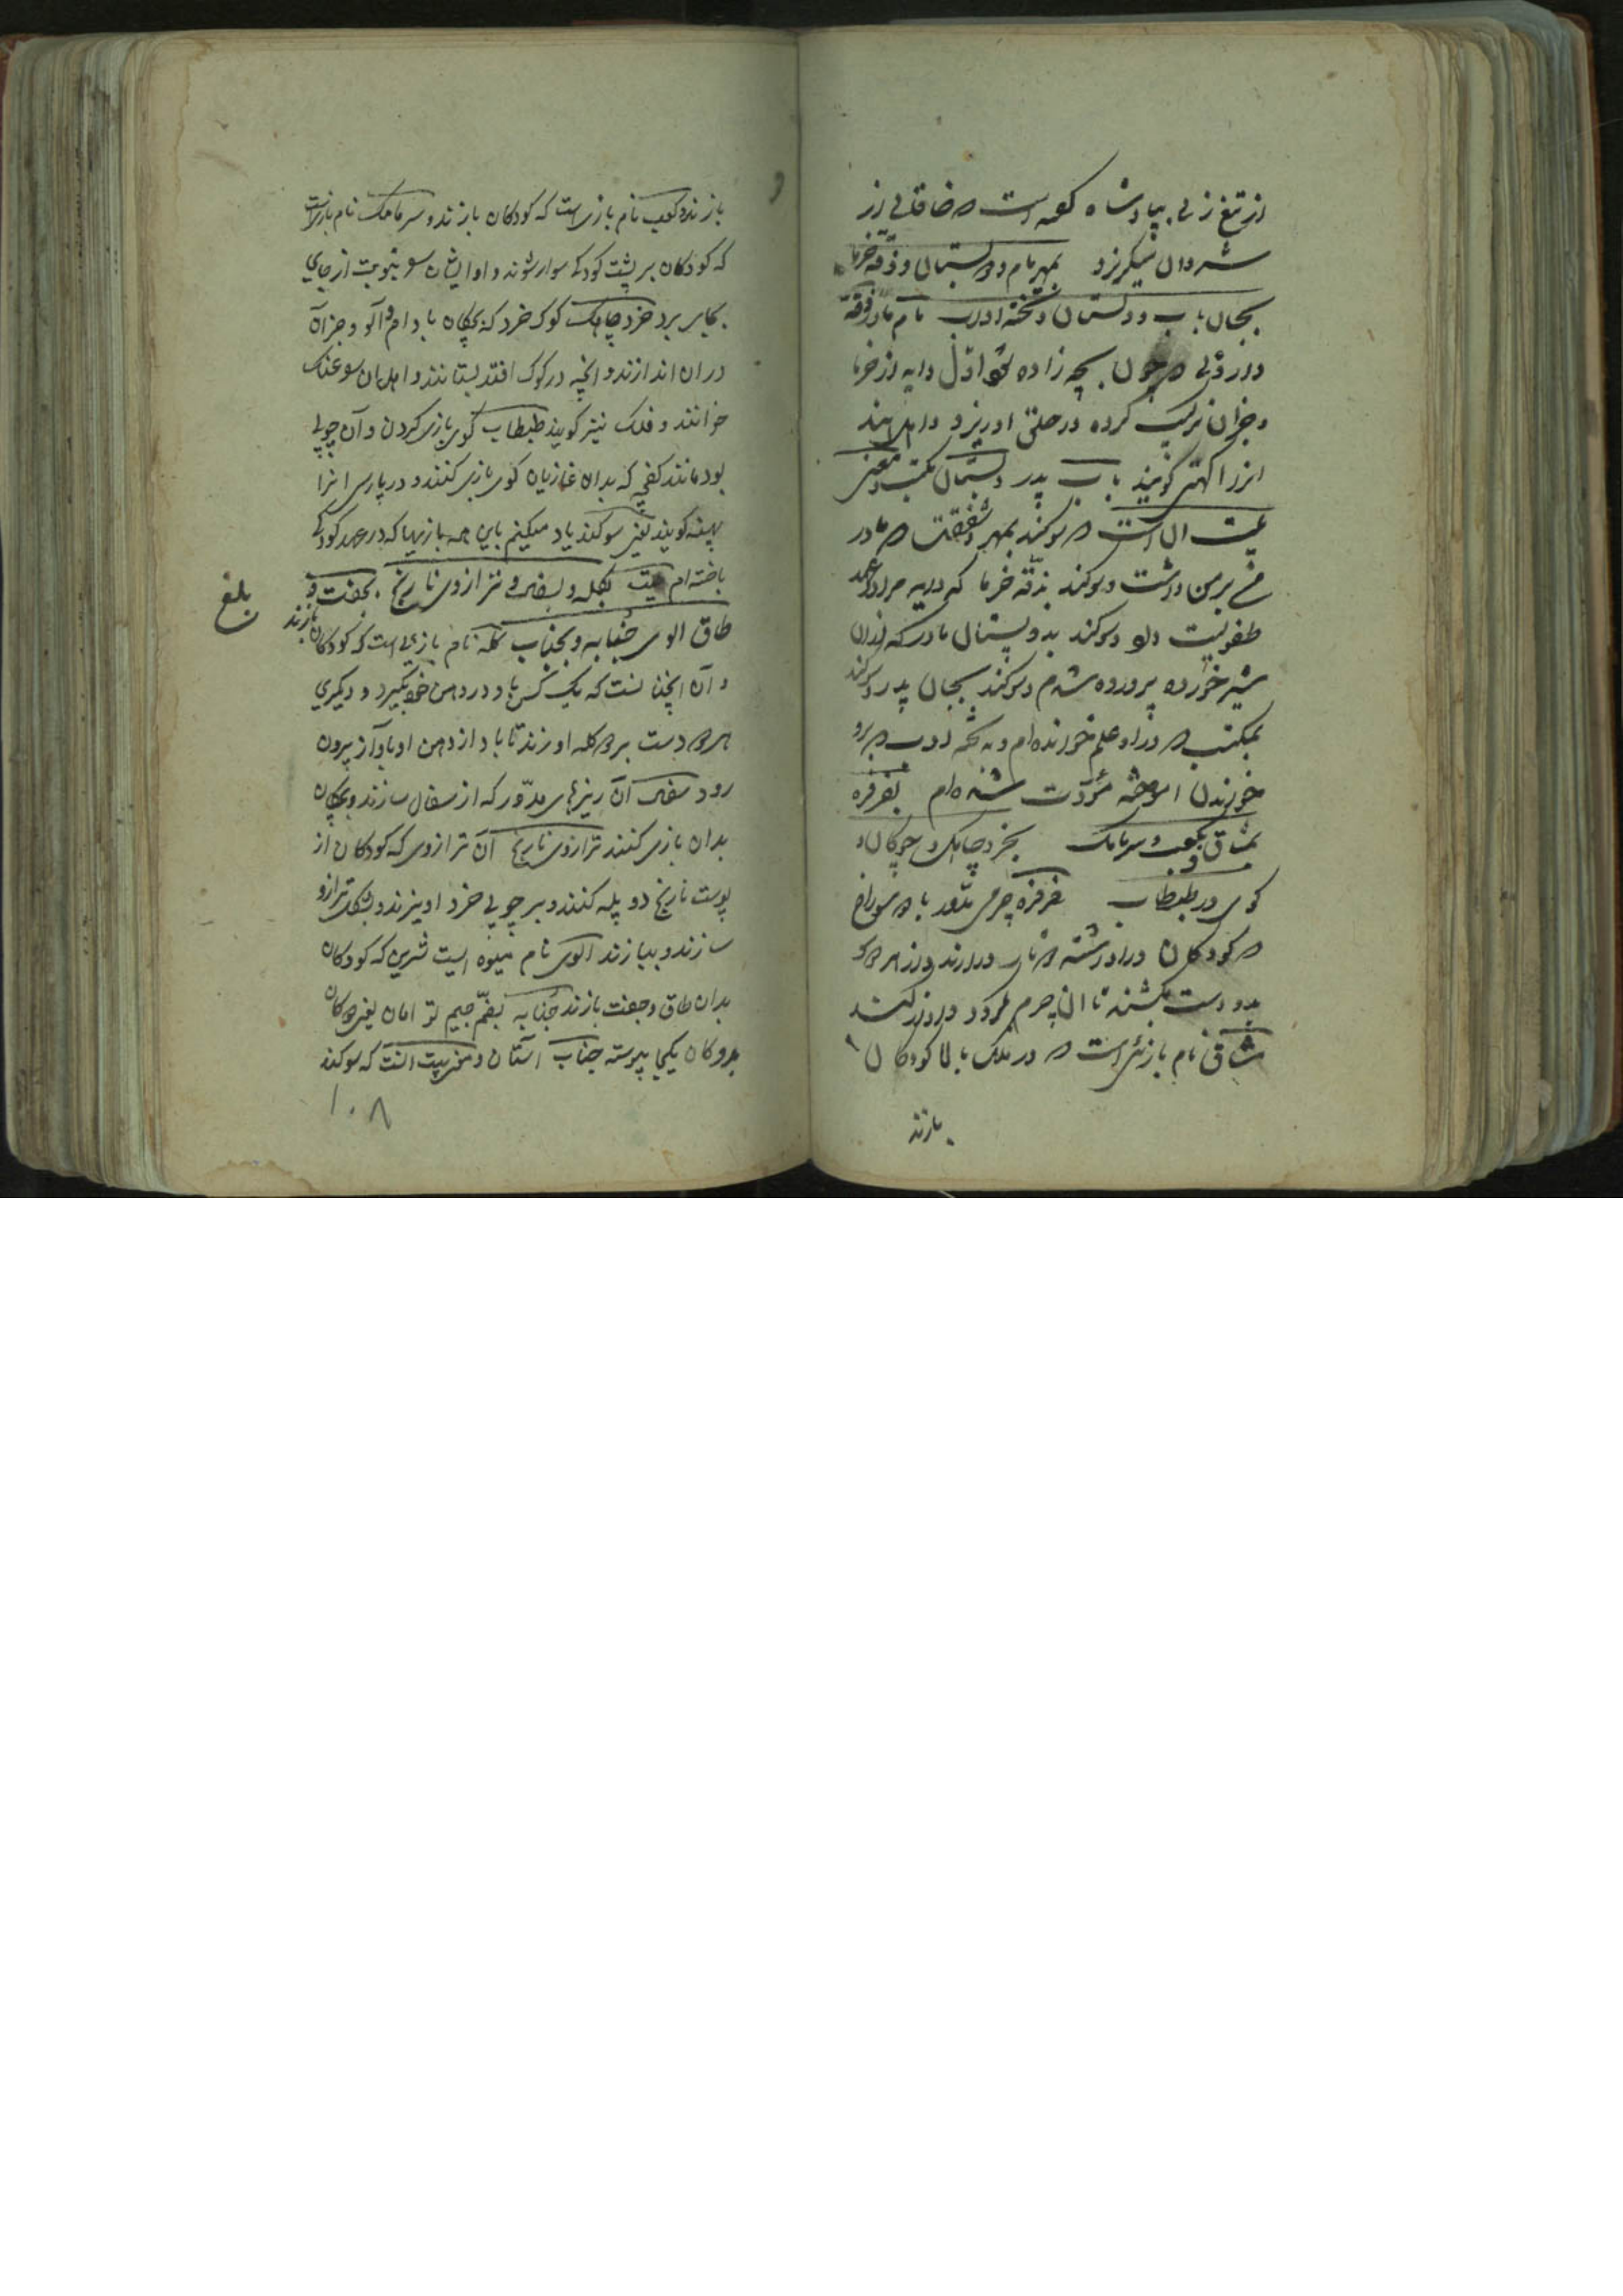 از تیغ زنی بپادشاه که است
شروان میگریزد بمهر مام و دو پستان و زقه خرما
بجان باب و دبستان و تخته ادب مام مادر زقه
دارویی چون بچه زاده شود اول دایه از خرما
و جزان ترکیب کرده در حلق او ریزد و اهل هند
انرا گویند باب پدر دبستان مکتب و معنی
بیت ان است سوگند بمهر و شفقت مادر
بر من داشت و سوگند بزقه خرما که دایه مرا در عهد
طفولیت داد و سوگند بدو پستان مادر که ازان
شیر خورده پرورده شدم و سوگند بجان پدر و سوگند
بمکتب در او علم خوانده ام و به تخته ادب برو
خواندن اموخته مؤدّب شده ام بفرفره
بمشاق و بکعب و سرمامک بخرد چاهک و چوکان و
کوی در طبطاب فرفره چرمی مدور با دو سوراخ
کودکان در او رشته تاب دراند و از هر دو
بدو دست بکشند تا ان چرم گردد و اواز کند
مشاق نام بازی است در ملک بالا کودکان
بازند
بازند و کعب نام بازی است که کودکان بازند و سرمامک نام بازیست
که کودکان بر پشت کودکی سوار شوند و او ایشان سو بنوبت از جای
بجایی برد خرد چاهک کوک خرد که بچکان بادام و آلو و جز آن
دران اندازند و انچه در کوک افتد بستانند و اهل
خوانند و فلک نیز کویند طبطاب کوی بازی کردن و آن چوبی
بود مانند کفچه که بدان غازیان کوی بازی کنند و در پارسی انرا
پهنه کویند یعنی سوکند یاد میکنم باین همه بازیها که در عهد کودکی
باخته ام بیت بکله و بسفر و ترازوی نارنج بجفت و
طاق الوی جنابه و بجناب کله نام بازی است که کودکان بازند
و آن انچنانست که یک کس باد در دهن خود بگیرد و دیکری
هر دو دست بر دو کله او زند تا باد از دهن او باواز بیرون
رود سفر آن ریزهای مدوّر که از سفال سازند و بچکان
بدان بازی کنند ترازوی نارنج آن ترازوی که کودکان از
پوست نارنج دو پله کنند و بر چوبی خرد اویزند و بشکل ترازو
سازند و ببازند الوی نام میوه ایست شیرین که کودکان
بدان طاق و جفت بازند جنابه بضمّ جیم تو امان یعنی
دو کودکان یکجا پیوسته جناب آستان و معنی بیت انست که سوکند
بلغ
۱۰۸